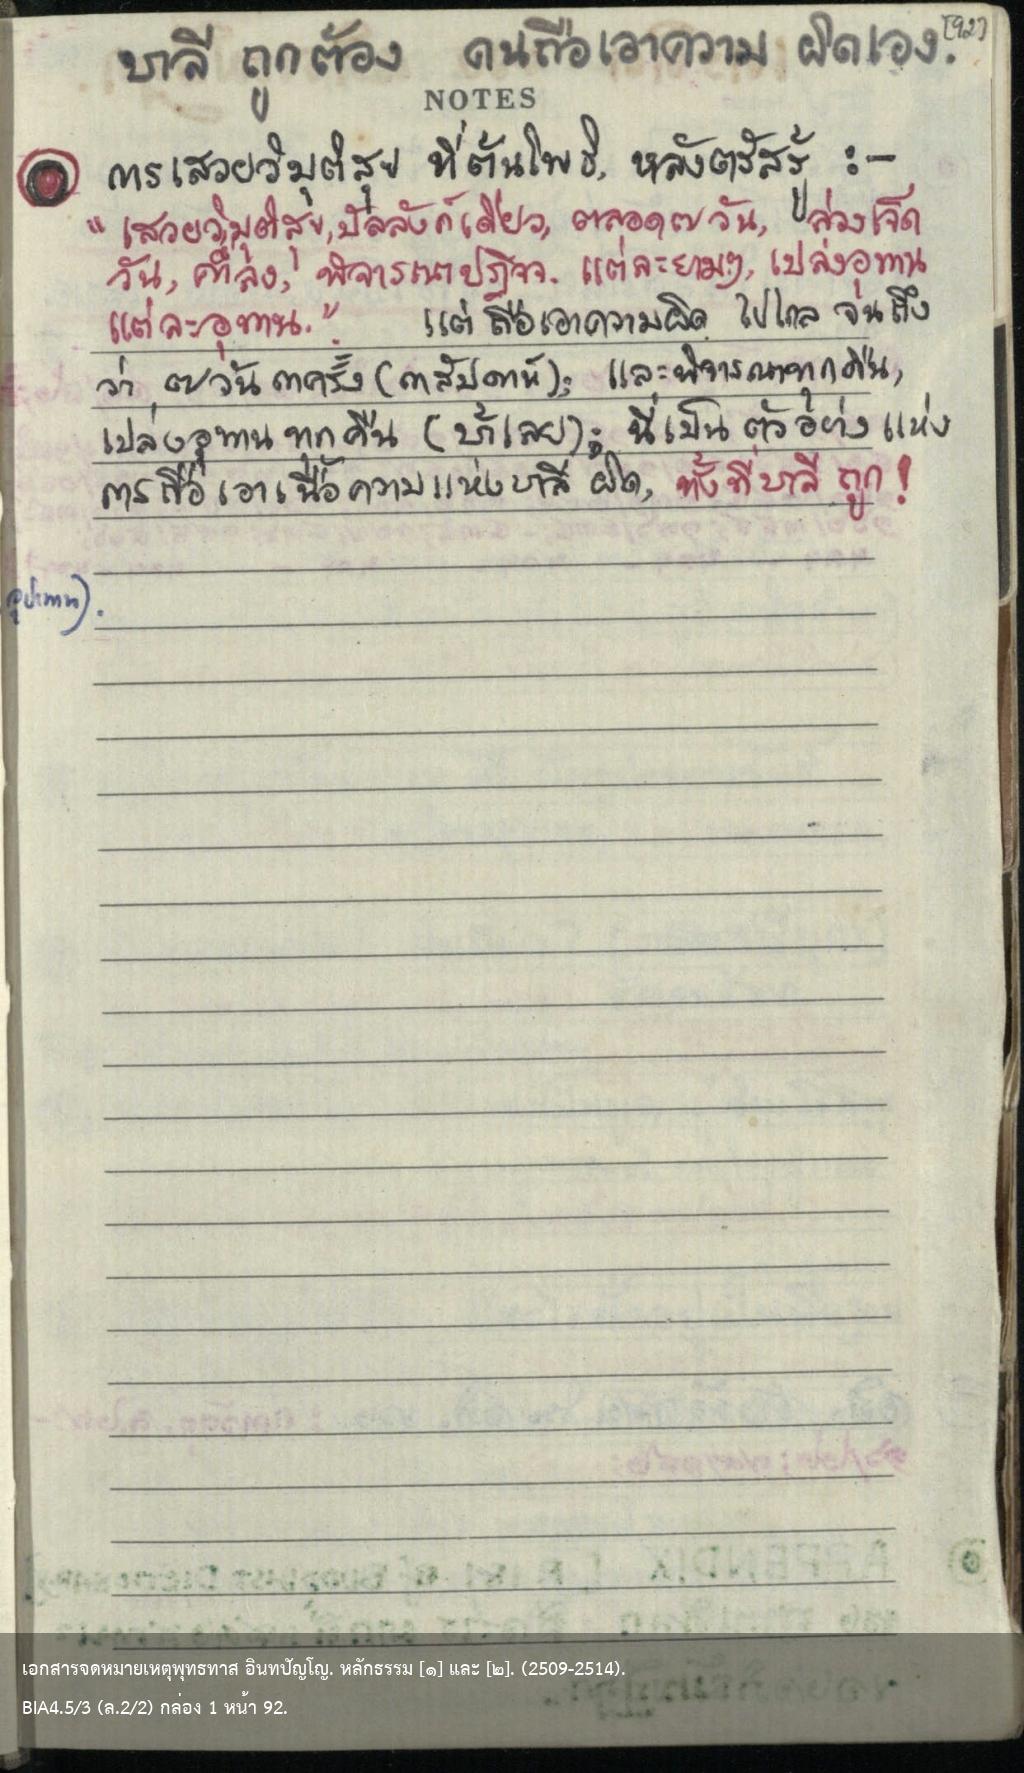 [92]
บาลี ถูกต้อง คนถือเอาความ ผิดเอง.
NOTES
การเสวยวิมุติสุข ที่ต้นโพธิ, หลังตรัสรู้ :–
"เสวยวิมุติสุข, บัลลังก์เดียว, ตลอด ๗ วัน, ล่วงเจ็ด
วัน, ค่ำลง, พิจารณาปฏิจจ. แต่ละยามๆ, เปล่งอุทาน
แต่ละอุทาน." แต่ ถือเอาความผิด ไปไกล จนถึง
ว่า ๗ วัน ๓ ครั้ง (๓ สัปดาห์); และพิจารณาทุกคืน,
เปล่งอุทาน ทุกคืน (บ้าเลย); นี่เป็น ตัวอย่าง แห่ง
การถือ เอาเนื้อความแห่งบาลี ผิด, ทั้งที่บาลี ถูก!
อุปาทาน).
เอกสารจดหมายเหตุพุทธทาส อินทปัญโญ. หลักธรรม [๑] และ [๒]. (2509-2514).
BIA4.5/3 (ล.2/2) กล่อง 1 หน้า 92.